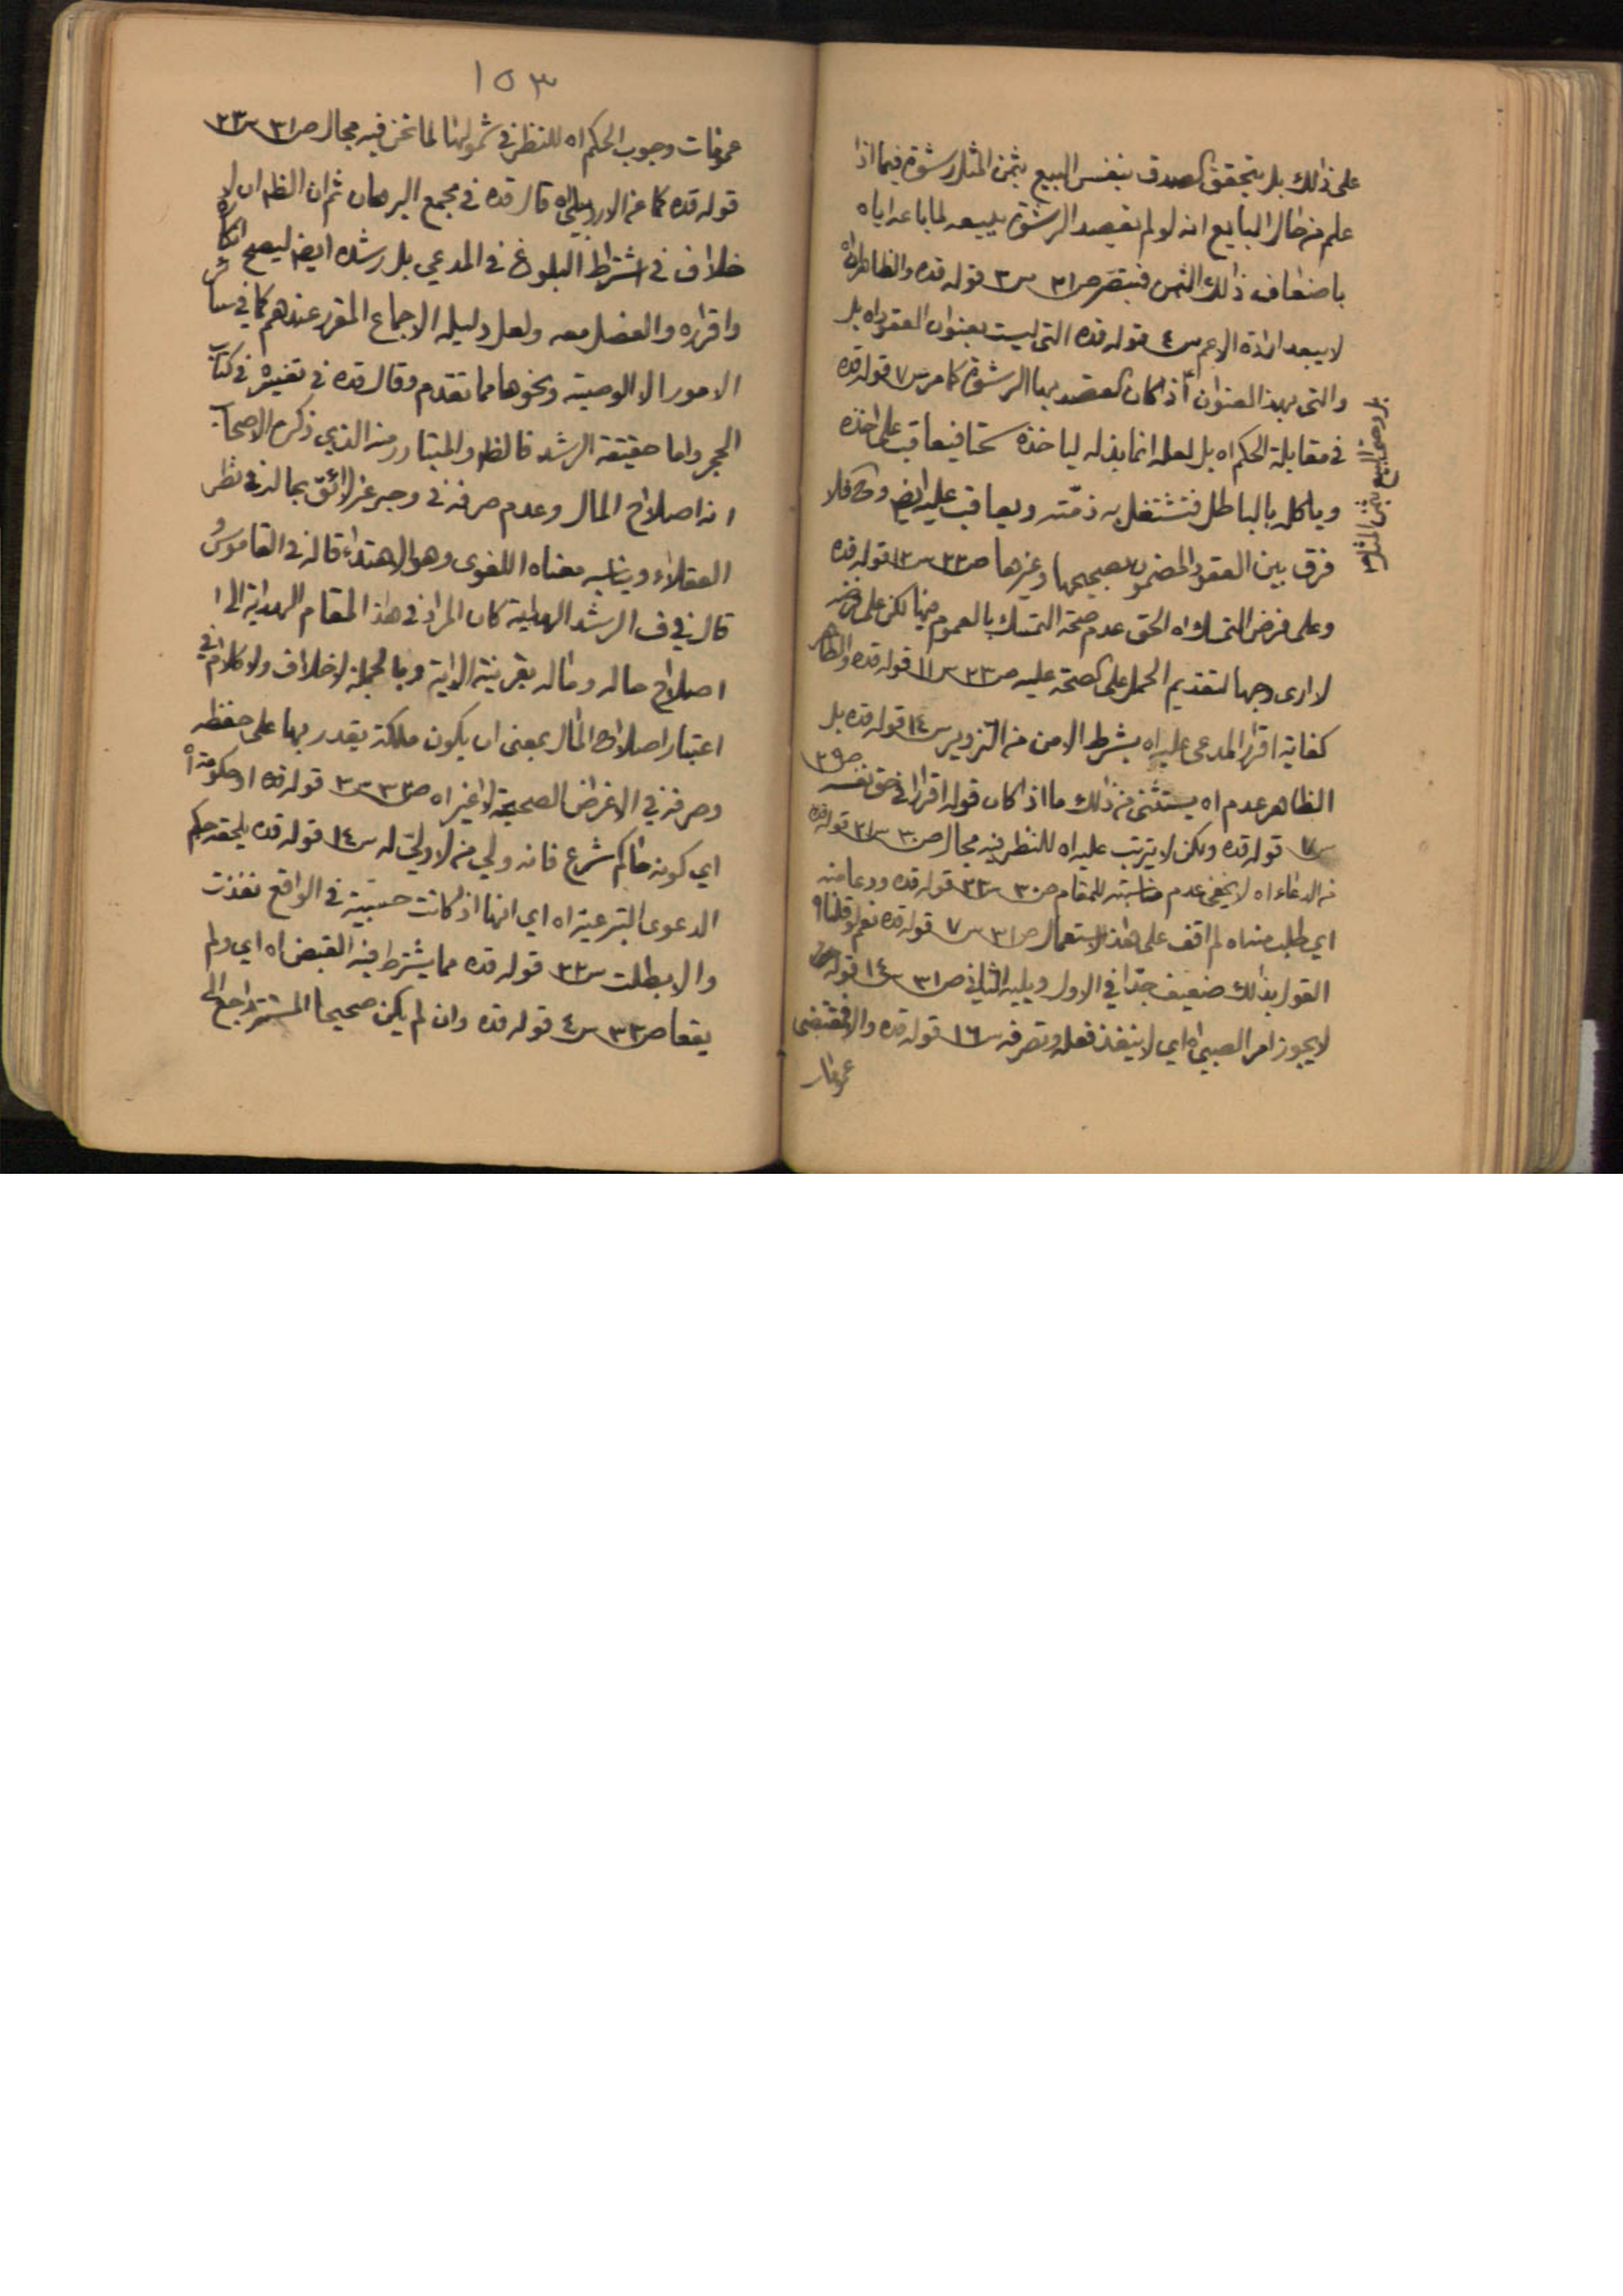 على ذلك بل يتحقق الصدق بنفس البيع بثمن المثل رشوة فيما اذا
علم من حال البايع انه لو لم يقصد الرشوة يبيعه لما باعه اياه
باضعاف ذلك الثمن فتبصر ص٣١ س٣ قوله قده والظاهر اه
لا يبعد ارادة الاعم س٤ قوله قده التى ليست بعنوان العقود اه بل
والتى بهذا العنوان اذا كان القصد بها الرشوة كما مر س٧ قوله قده
فى مقابلة الحكم اه بل لعله انما بذله لياخذه سحتا فيعاقب على اخذه
وياكله بالباطل فتشتغل به ذمّته ويعاقب عليه ايضا وح فلا
فرق بين العقود المضمون بصحيحها وغيرها ص٢٣ س١٣ قوله قده
وعلى فرض التمسك اه الحق عدم صحة التمسك بالعموم فيها لكن على فرضه
لا ارى وجها لتقديم الحمل على الصحة عليه ص٢٣ س١١ قوله قده والظاهر
كفاية اقرار المدعى عليه اه بشرط الامن من التزوير س١٤ قوله قده بل
الظاهر عدم اه يستثنى من ذلك ما اذا كان قوله اقرارا فى حق نفسه ص٢٩
س٧ قوله قده ولكن لا يترتب عليه اه للنظر فيه مجال ص٣٠ س٢١ قوله قده
من الدعاء اه لا يخفى عدم مناسبته للمقام ص٣٠ س٢٣ قوله قده ودعا منه
اى طلب منه اه لم اقف على هذا الاستعمال ص٣١ س٧ قوله قده نعم لو قلنا اه
القول بذلك ضعيف جدّا فى الاول ويليه الثانى ص٣١ س١٤ قوله
لا يجوز امر الصبى اه اى لا ينفذ فعله وتصرفه س١٦ قوله قده والا فمقتضى
عمومات
بل وبدون البيع بثمن المثل
١٥٣
عمومات وجوب الحكم اه للنظر فى شمولها لما نحن فيه مجال ص٣١ س٢٣
قوله قده كما عن الاردبيلى اه قال قده فى مجمع البرهان ثم ان الظ ان لا
خلاف فى اشتراط البلوغ فى المدعي بل رشده ايضا ليصح انكاره
واقراره والفصل معه ولعل دليله الاجماع المقرر عندهم كما فى سائر
الامور الا الوصية ونحوها مما تقدم وقال قده فى تفسيره فى كتاب
الحجر واما حقيقة الرشد فالظ والمتبادر منه الذي ذكره الاصحاب
انه اصلاح المال وعدم صرفه فى وجه غير لائق بحاله فى نظر
العقلاء ويناسبه معناه اللغوى وهو الاهتداء قاله فى القاموس و
قال فى ف الرشد الهداية كان المراد فى هذا المقام الهداية الى
اصلاح حاله وماله بقرينة الاية وبالجملة لا خلاف ولا كلام فى
اعتبار اصلاح المال بمعنى ان يكون ملكة يقدر بها على حفظه
وصرفه فى الاغراض الصحيحة لا غير اه ص٣٣ س٣ قوله قده او حكومة اه
اي كونه حاكم شرع فانه ولي من لا ولىّ له س١٤ قوله قده يلحقه حكم
الدعوى الشرعية اه اي انها اذا كانت حسبية فى الواقع نفذت
والا بطلت س٢٣ قوله قده مما يشترط فيه القبض اه اي ولم
يقعا ص٣٣ س٤ قوله قده وان لم يكن صحيحا المستتر راجع الى